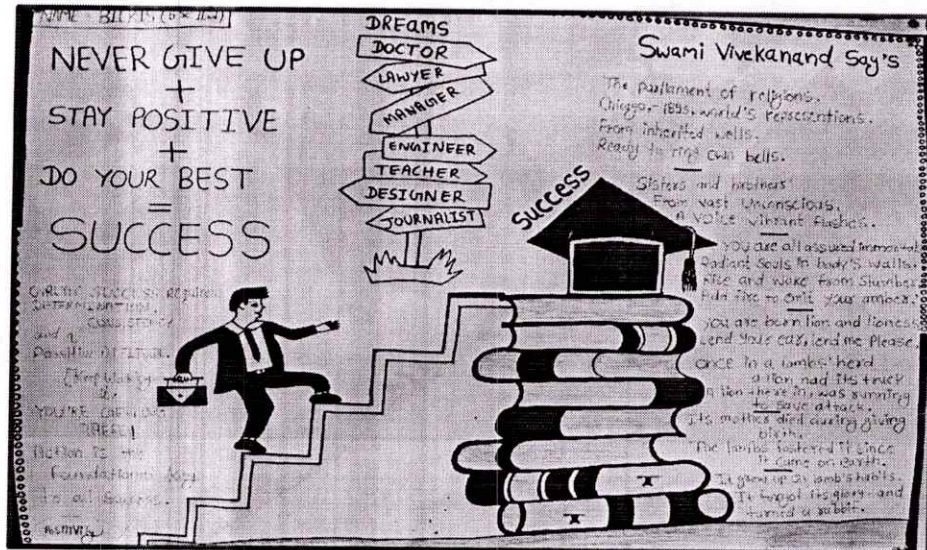 NEVER GIVE UP
+
STAY POSITIVE
+
DO YOUR BEST
=
SUCCESS
SUCCESS
and a
Positive
YOU'RE GETTING
THERE!
Action is the
foundational
to all success.
Positivity
DREAMS
DOCTOR
LAWYER
MANAGER
ENGINEER
TEACHER
DESIGNER
JOURNALIST
Success
Swami Vivekanand Say's
The parliament of religions.
1893, world's
From inherited wells.
Ready to own bells.
Sisters and brothers
From vast unconscious,
A voice vibrant flushes.
You are all assured immortal
Radiant souls in body's walls.
Rise and wake from slumber
fire to your
you are born lion and lioness
Lend your ear, lend me please.
once in a lambs' herd
a lion had its
a lion there in, was running
to save attack.
Its mother died during giving
birth.
The lambs fostered it since
it came on earth.
It grew up in lamb's habits.
It forgot its glory and
turned a rabbit.